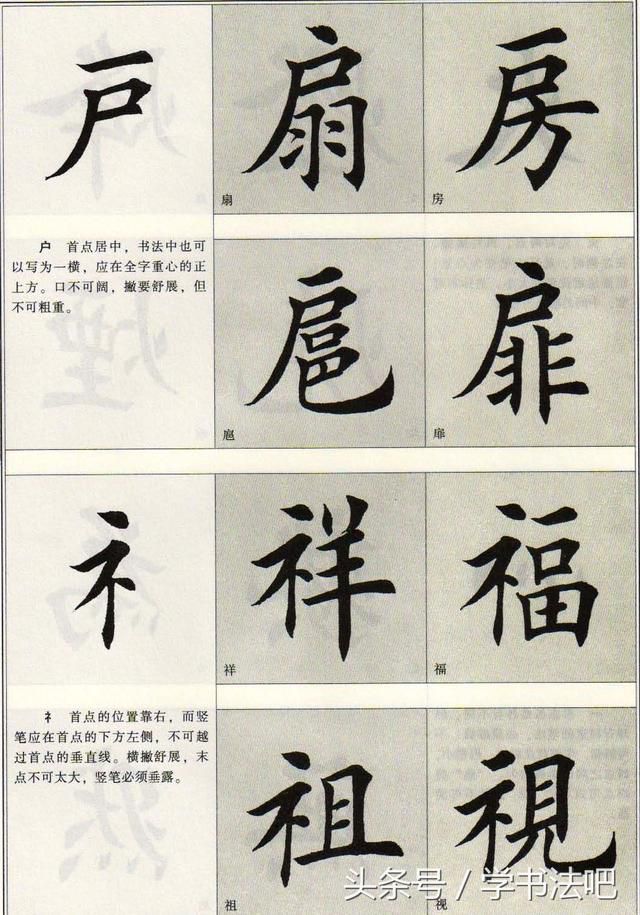 户 扇 房
扇 房
户 首点居中，书法中也可
以写为一横，应在全字重心的正
上方。口不可阔，撇要舒展，但
不可粗重。
扈 扉
扈 扉
礻 祥 福
祥 福
礻 首点的位置靠右，而竖
笔应在首点的下方左侧，不可越
过首点的垂直线。横撇舒展，末
点不可太大，竖笔必须垂露。
祖 視
祖 视
头条号／学书法吧